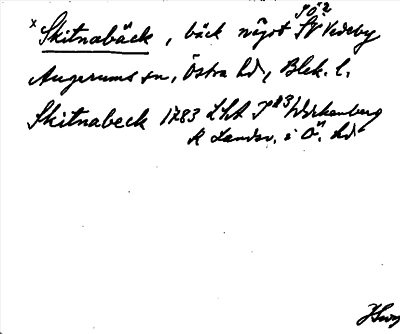 x Skitnabäck, bäck något SV Vedeby
SÖ?
Augerums sn, Östra hd, Blek. l.
Skitnabeck 1783 LSA J 83 Wirkenberg
R Landsv. i Ö. hd